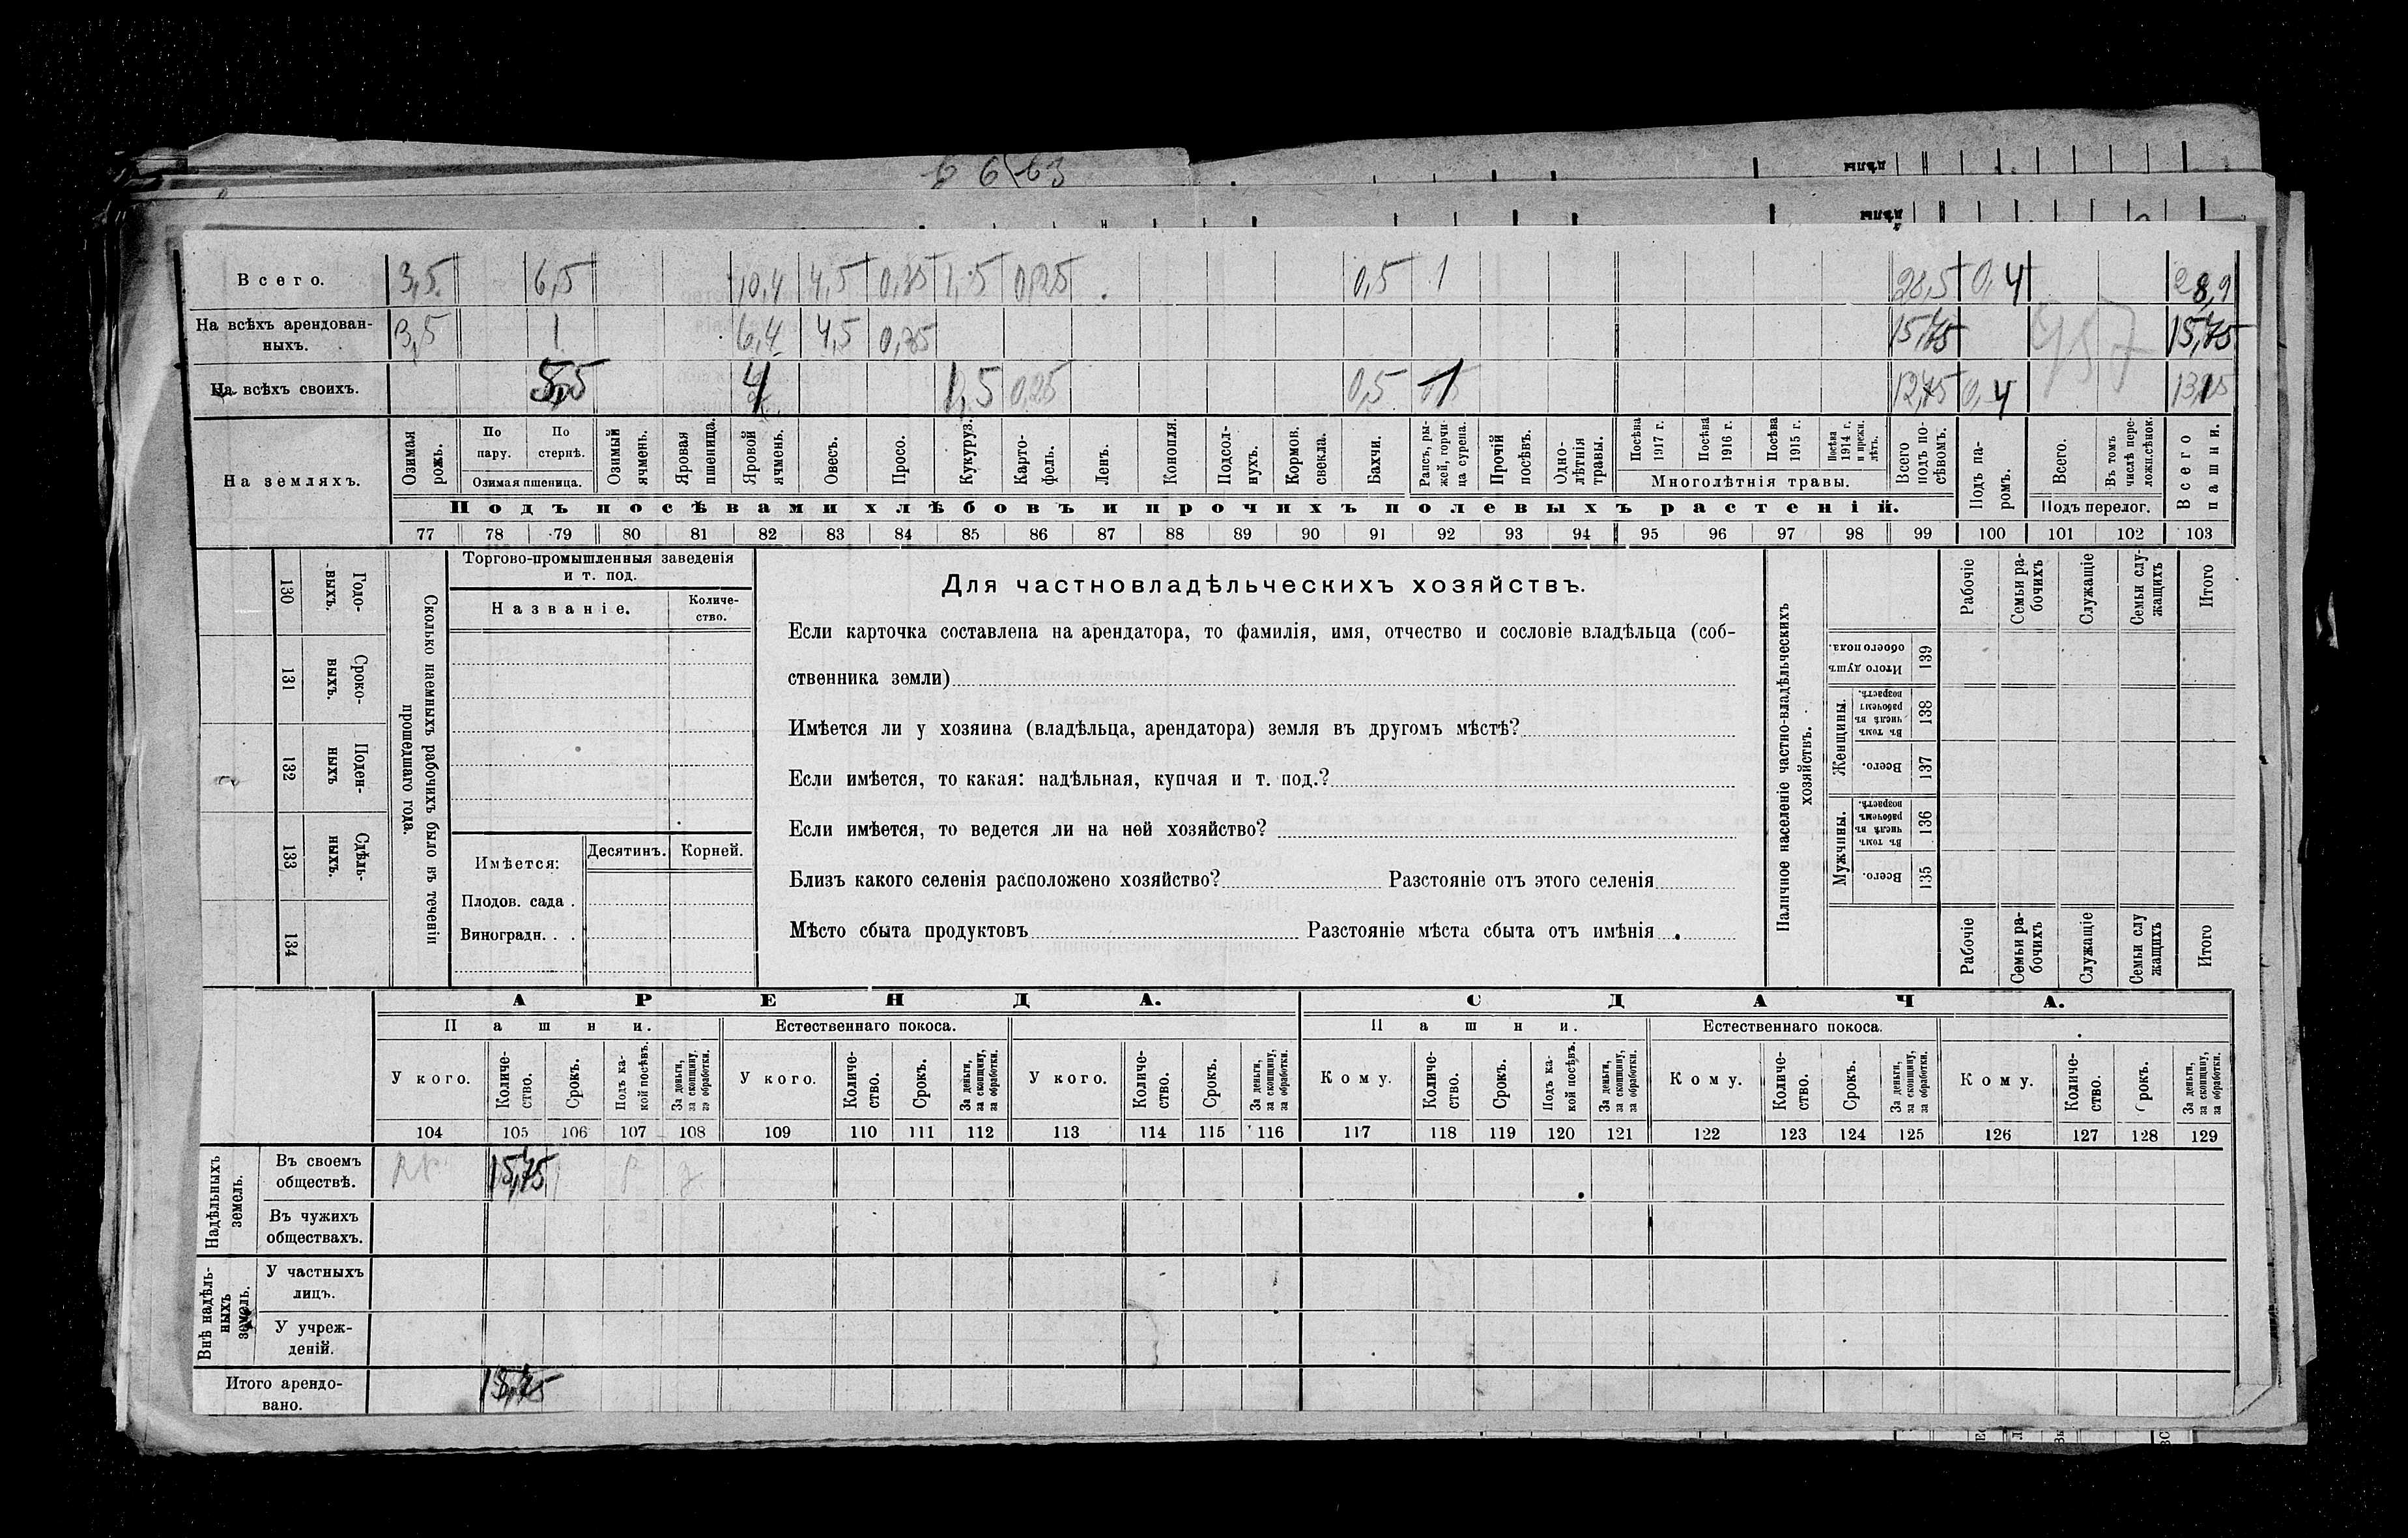 6663
Всего. 3,5 6,5 10,4 4,5 0,35 1,5 0,25 0,5 1 28,5 0,4 28,9
На всѣхъ арендован-
ныхъ. 3,5 1 6,4 4,5 0,35 15,75 15,75
На всѣхъ своихъ. 5,5 4 1,5 0,25 0,5 1 12,75 0,4
957
На земляхъ.
Озимая рожь.
По пару.
По стернѣ.
Озимая пшеница.
Озимый ячмень.
Яровая пшеница.
Яровой ячмень.
Овесъ.
Просо.
Кукуруз.
Карто-
фель.
Ленъ.
Конопля.
Подсол-
нухъ.
Кормов. свекла.
Бахчи.
Рапсъ, ры-
жей, горчи-
ца сурепа.
Прочій посѣвъ.
Одно-
лѣтнія травы.
Посѣва 1917 г.
Посѣва 1916 г.
Посѣва 1915 г.
Посѣва 1914 г. и прежн. лѣтъ.
Многолѣтнія травы.
Всего подъ по-
сѣвомъ.
Подъ па-
ромъ.
Всего.
Въ томъ числѣ пере-
ложн.сѣнок.
Подъ перелог.
Всего пашни.
Подъ посѣвами хлѣбовъ и прочихъ полевыхъ растеній.
77 78 79 80 81 82 83 84 85 86 87 88 89 90 91 92 93 94 95 96 97 98 99 100 101 102 103
130 Годо-
выхъ.
131 Сроко-
выхъ.
132 Поден-
ныхъ
133 Сдѣль-
ныхъ.
134
Сколько наемныхъ рабочихъ было въ теченіи
прошедшаго года.
Торгово-промышленныя заведенія
и т. под.
Названіе.
Количе-
ство.
Имѣется:
Десятинъ.
Корней.
Плодов. сада .
Виноградн. . .
Для частновладѣльческихъ хозяйствъ.
Если карточка составлена на арендатора, то фамилія, имя, отчество и сословіе владѣльца (соб-
ственника земли)
Имѣется ли у хозяина (владѣльца, арендатора) земля въ другомъ мѣстѣ?
Если имѣется, то какая: надѣльная, купчая и т. под.?
Если имѣется, то ведется ли на ней хозяйство?
Близъ какого селенія расположено хозяйство? Разстояніе отъ этого селенія
Мѣсто сбыта продуктовъ Разстояніе мѣста сбыта отъ имѣнія
Наличное населеніе частно-владѣльческихъ
хозяйствъ.
Рабочіе
Семьи ра-
бочихъ
Служащіе
Семьи слу-
жащихъ
Итого
Итого душъ обоего пола. 139
Женщины.
Въ томъ числѣ въ рабочемъ возрастѣ. 138
Всего. 137
Мужчины.
Въ томъ числѣ въ рабочемъ возрастѣ. 136
Всего. 135
Рабочіе
Семьи ра-
бочихъ
Служащіе
Семьи слу
жащихъ
Итого
АРЕНДА. СДАЧА.
Пашни. Естественнаго покоса. Пашни. Естественнаго покоса.
У кого.
Количе-
ство.
Срокъ.
Подъ ка-
кой посѣвъ.
За деньги, за скопщину, за обработки.
У кого.
Количе-
ство.
Срокъ.
За деньги, за скопщину, за обработки.
У кого.
Количе-
ство.
Срокъ.
За деньги, за скопщину, за обработки.
Кому.
Количе-
ство.
Срокъ.
Подъ ка-
кой посѣвъ.
За деньги, за скопщину, за обработки.
Кому.
Количе-
ство.
Срокъ.
За деньги, за скопщину, за обработки.
Кому.
Количе-
ство.
Срокъ.
За деньги, за скопщину, за обработки.
104 105 106 107 108 109 110 111 112 113 114 115 116 117 118 119 120 121 122 123 124 125 126 127 128 129
Надѣльныхъ земель.
Въ своемъ
обществѣ. 15,75
Въ чужихъ
обществахъ.
Внѣ надѣль-
ныхъ земель.
У частныхъ
лицъ.
У учреж-
деній.
Итого арендо-
вано.